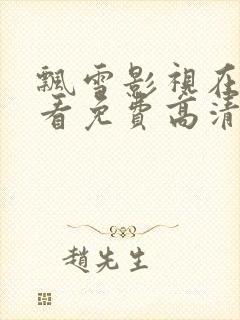 飄雪影視在
看免費高清
趙先生